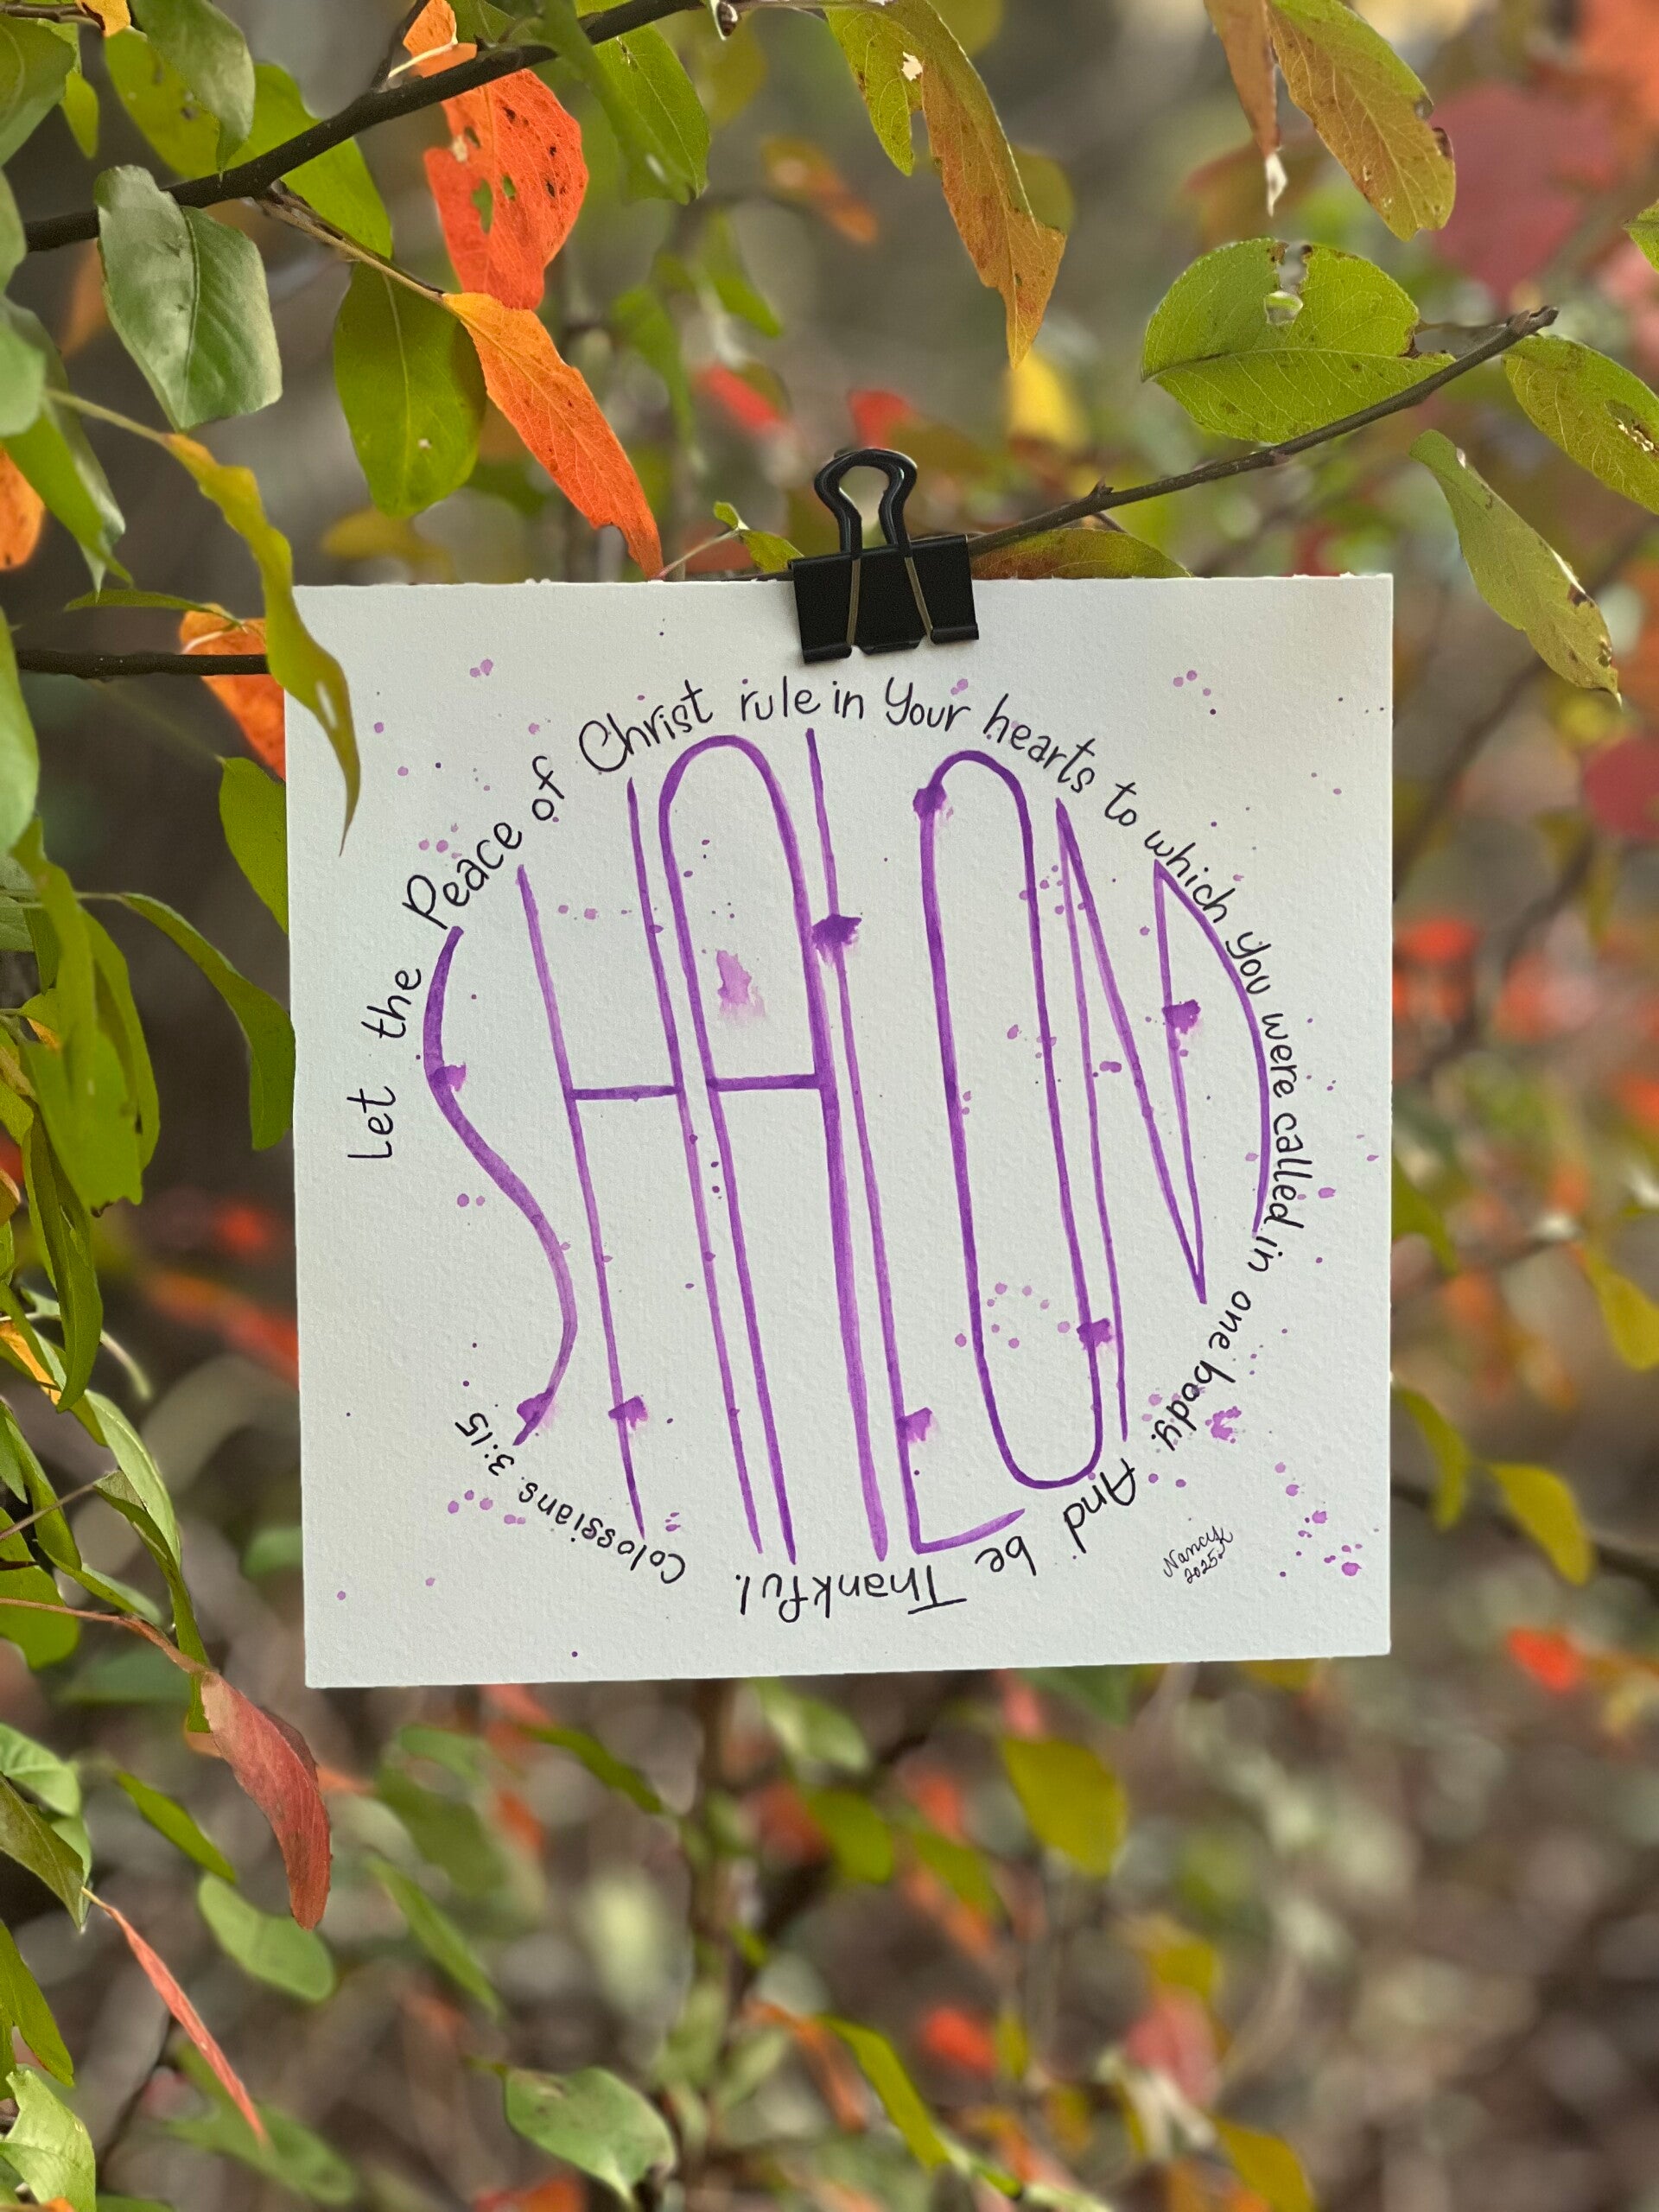 Let the Peace of Christ rule in Your hearts to which you were called in one body. And be Thankful. Colossians 3:15
SHALOM
NancyK
2025